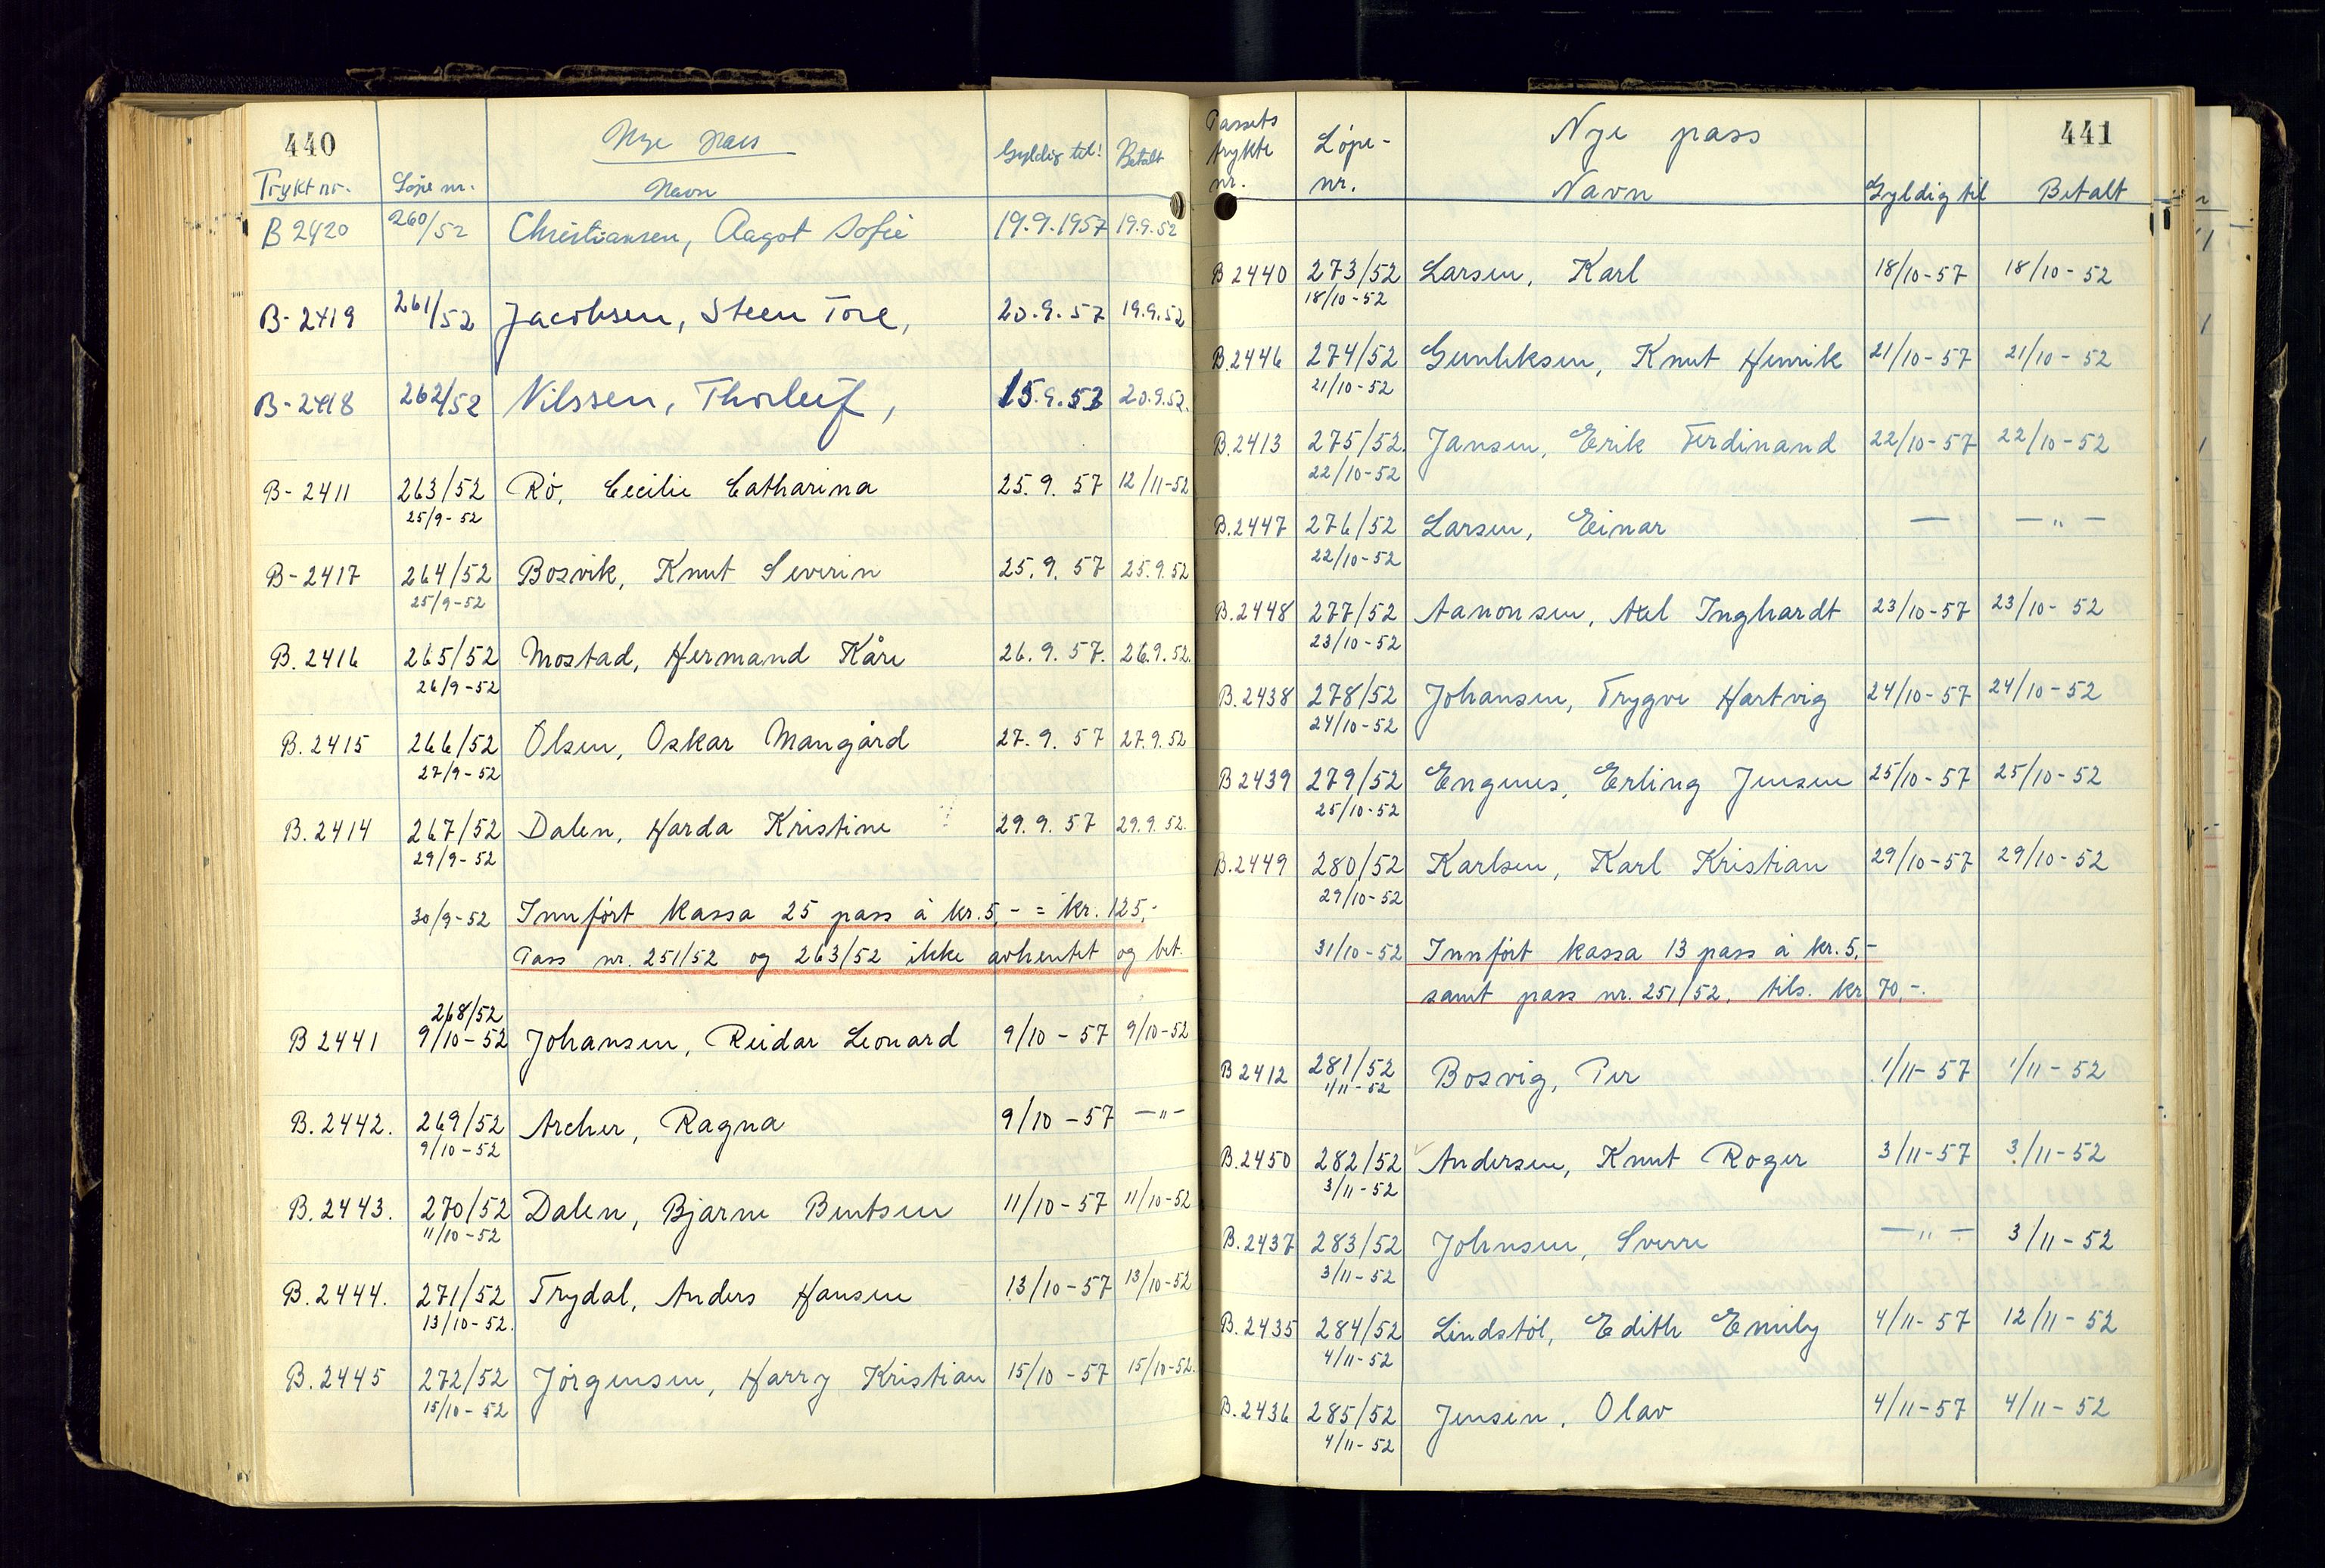 440
Nye Pass
Tryktnr. Løpe nr. Navn Gyldig til! Betalt
B 2420 260/52 Christiansen, Aagot Sofie 19.9.1957 19.9.52
B-2419 261/52 Jacobsen, Steen Tore, 20.9.57 19.9.52
B-2418 262/52 Nilssen, Thorleif, 15.9.53 20.9.52.
B-2411 263/52 Rö, Cecilie Catharina 25.9.57 12/11-52
25/9-52
B-2417 264/52 Bosvik, Knut Severin 25.9.57 25.9.52
25/9-52
B.2416 265/52 Mostad, Hermand Kåre 26.9.57. 26.9.52.
26/9-52
B.2415 266/52 Olsen, Oskar Mangård 27.9.57 27.9.52
27/9-52
B.2414 267/52 Dalen, Harda Kristine 29.9.57 29.9.52.
29/9-52
30/9-52 Innført kassa 25 pass à kr.5,- = kr. 125,-
Pass nr. 251/52 og 263/52 ikke avhentet og bet.
268/52
B 2441 9/10-52 Johansen, Reidar Leonard 9/10-57 9/10-52
B.2442. 269/52 Archer, Ragna 9/10-57 -"-
9/10-52
B.2443. 270/52 Dalen, Bjarne Bentsen 11/10-57 11/10-52
11/10-52
B.2444. 271/52 Trydal, Anders Hansen 13/10-57 13/10-52
13/10-52.
B.2445 272/52 Jörgensen, Harry Kristian 15/10-57 15/10-52.
15/10-52
441
Nye pass
Passets trykte nr. Löpe-nr. Navn Gyldig til Betalt
B.2440 273/52 Larsen, Karl 18/10-57 18/10-52
18/10-52
B.2446 274/52 Gundersen, Knut Henrik 21/10-57 21/10-52
21/10-52
B.2413 275/52. Jansen, Erik Ferdinand 22/10-57 22/10-52
22/10-52
B.2447 276/52 Larsen, Einar — -"-
22/10-52
B.2448 277/52 Aanonsen, Axel Inghardt 23/10-57 23/10-52
23/10-52
B.2438 278/52 Johansen, Trygve Hartvig 24/10-57 24/10-52
24/10-52
B 2439 279/52 Engenes, Erling Jensen 25/10-57 25/10-52
25/10-52
B.2449 280/52 Karlsen, Karl Kristian 29/10-57 29/10-52
29/10-52
31/10-52 Innført kassa 13 pass à kr.5,-
samt pass nr. 251/52, tils. kr 70,-.
B 2412 281/52 Bosvig, Per 1/11-57 1/11-52
1/11-52
B.2450 282/52 Andersen, Knut Roger 3/11-57 3/11-52
3/11-52
B.2437 283/52 Johnsen, Sverre -"- 3/11-52
3/11-52
B.2435 284/52 Lindstöl, Edith Emily 4/11-57 12/11-52
4/11-52
B.2436 285/52 Jensen, Olav 4/11-57 4/11-52
4/11-52